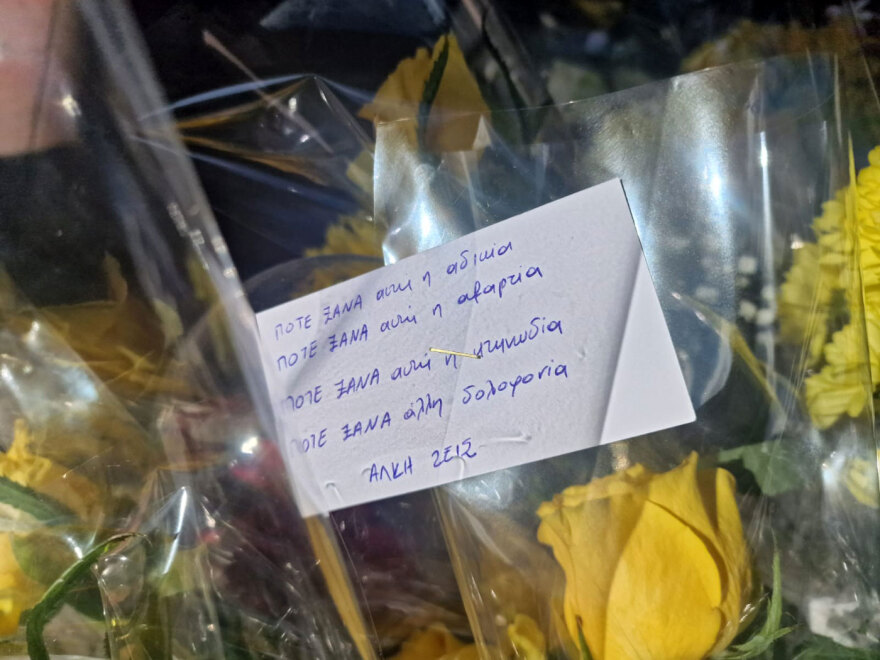 ΠΟΤΕ ΞΑΝΑ αυτή η αδικία
ΠΟΤΕ ΞΑΝΑ αυτή η αμαρτία
ΠΟΤΕ ΞΑΝΑ αυτή η κτηνωδία
ΠΟΤΕ ΞΑΝΑ άλλη δολοφονία
ΑΛΚΗ ΖΕΙΣ